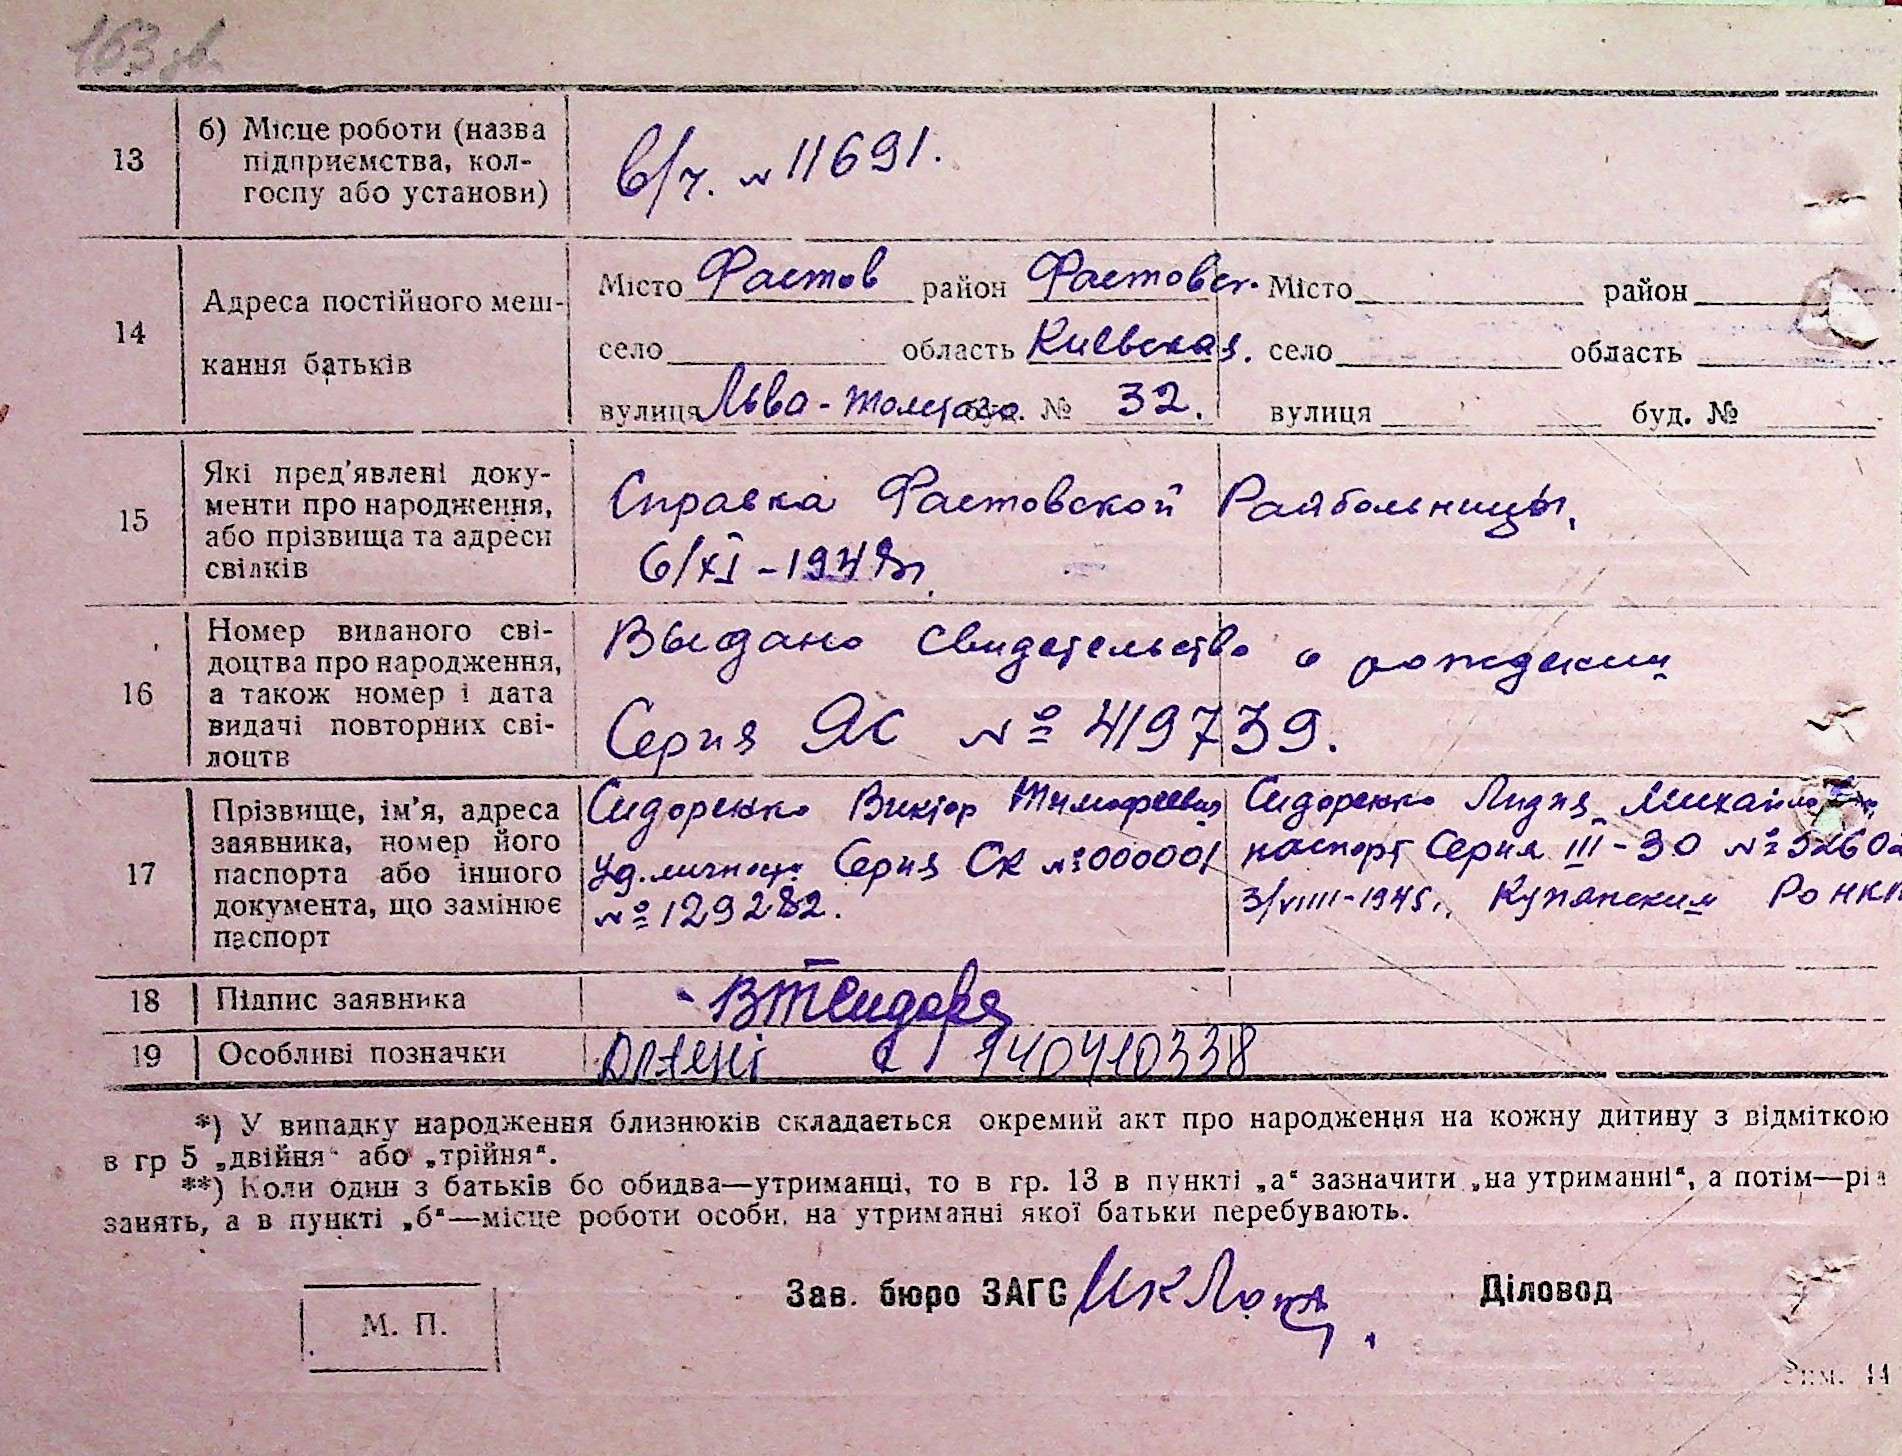 163 зв
13
б) Місце роботи (назва
підприємства, кол-
госпу або установи)
в/ч. № 11691.
14
Адреса постійного меш-
кання батьків
Місто Фастов район Фастовск. Місто район
село область Киевская. село область
вулиця Льва-Толстого буд. № 32. вулиця буд. №
15
Які пред'явлені доку-
менти про народження,
або прізвища та адреси
свілків
Справка Фастовской Райбольницы.
6/XI-1948г.
16
Номер виланого сві-
доцтва про народження,
а також номер і дата
видачі повторних сві-
лоцтв
Выдано свидетельство о рождении
Серия ЯС № 419739.
17
Прізвище, ім'я, адреса
заявника, номер його
паспорта або іншого
документа, що замінює
паспорт
Сидоренко Виктор Тимофеевич
Уд. личности Серия СК № 000001
№ 129282.
Сидоренко Лидия
паспорт Серия III-ЗО №
3/VIII-1945г. РО НКВ
18
Підпис заявника
19
Особливі позначки
140410338
*) У випадку народження близнюків складається окремий акт про народження на кожну дитину з відміткою
в гр 5 „двійня“ або „трійня“.
**) Коли один з батьків бо обидва—утриманці, то в гр. 13 в пункті „а“ зазначити „на утриманні“, а потім—рід
занять, а в пункті „б“—місце роботи особи, на утриманні якої батьки перебувають.
Зав. бюро ЗАГС
Діловод
М. П.